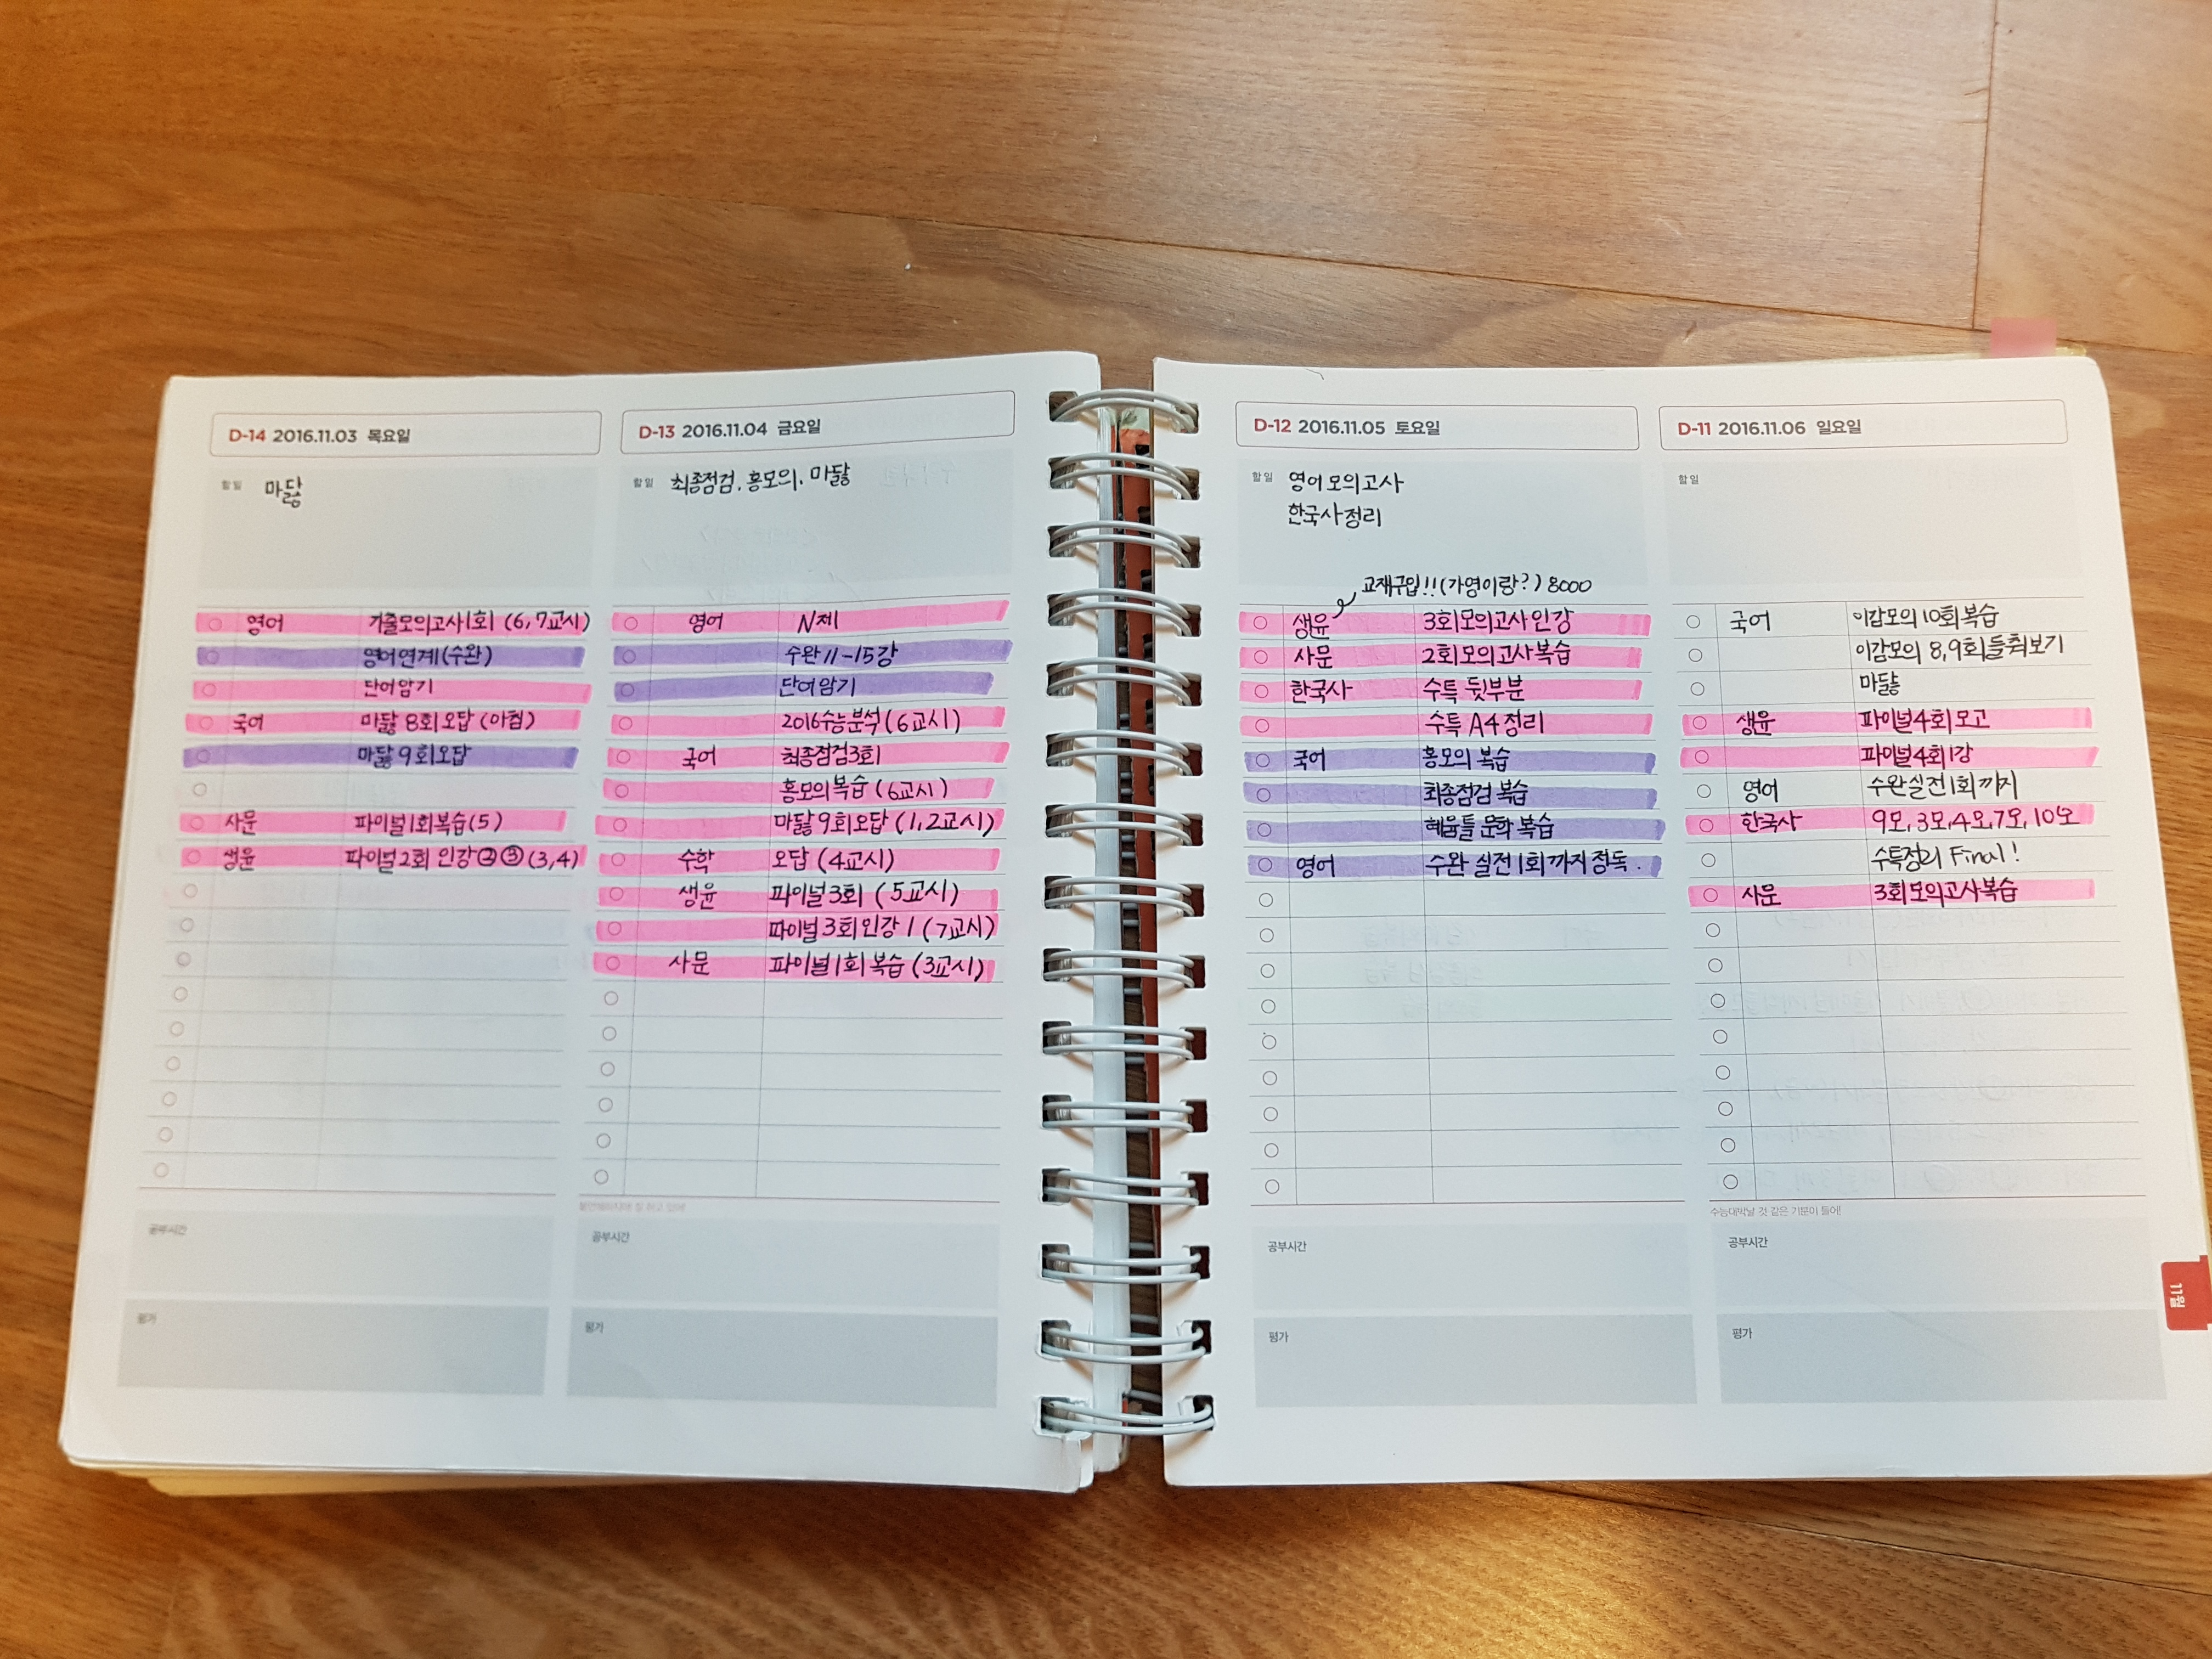 D-14 2016.11.03 목요일
할일 마닳
영어 기출모의고사1회 (6,7교시)
영어연계(수완)
단어암기
국어 마닳 8회 오답 (아침)
마닳 9회 오답
사문 파이널1회복습(5)
생윤 파이널2회 인강②③(3,4)
공부시간
평가
D-13 2016.11.04 금요일
할일 최종점검, 홍모의, 마닳
영어 N제
수완 11-15강
단어암기
2016수능분석(6교시)
국어 최종점검3회
홍모의복습 (6교시)
마닳9회오답(1,2교시)
수학 오답 (4교시)
생윤 파이널3회 (5교시)
파이널3회인강 1 (7교시)
사문 파이널1회 복습(3교시)
공부시간
평가
D-12 2016.11.05 토요일
할일 영어모의고사
한국사정리
교재구입!!(가영이랑?) 8000
생윤 3회모의고사인강
사문 2회모의고사복습
한국사 수특 뒷부분
수특 A4 정리
국어 홍모의 복습
최종점검 복습
혜윰틀 문학 복습
영어 수완 실전1회까지 정독.
공부시간
평가
D-11 2016.11.06 일요일
할일
국어 이감모의 10회복습
이감모의 8,9회들춰보기
마닳
생윤 파이널4회 모고
파이널4회1강
영어 수완실전1회까지
한국사 9모, 3모,4모,7모, 10모
수특정리 Final!
사문 3회모의고사복습
수능대박날 것 같은 기분이 들어!
공부시간
평가
11월